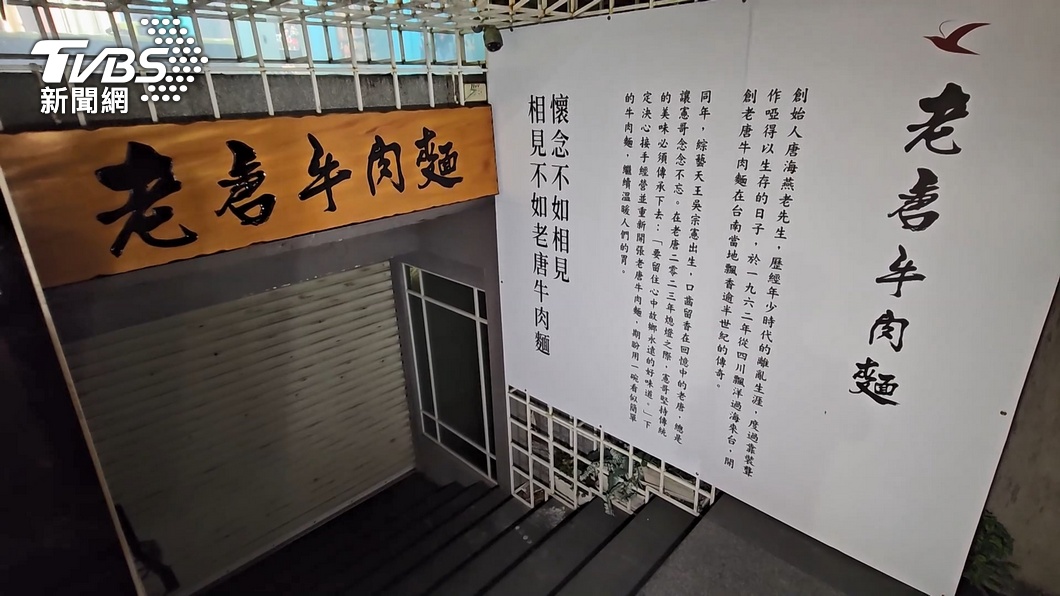 TVBS
新聞網
老唐牛肉麵
老唐牛肉麵
創始人唐海燕老先生，歷經年少時代的離亂生涯，度過靠裝聾
作啞得以生存的日子，於一九六二年從四川飄洋過海來台，開
創老唐牛肉麵在台南當地飄香逾半世紀的傳奇。
同年，綜藝天王吳宗憲出生，口齒留香在回憶中的老唐，總是
讓憲哥念念不忘。在老唐二零二三年熄燈之際，憲哥堅持傳統
的美味必須傳承下去：「要留住心中故鄉永遠的好味道。」下
定決心接手經營並重新開張老唐牛肉麵，期盼用一碗看似簡單
的牛肉麵，繼續溫暖人們的胃。
懷念不如相見
相見不如老唐牛肉麵